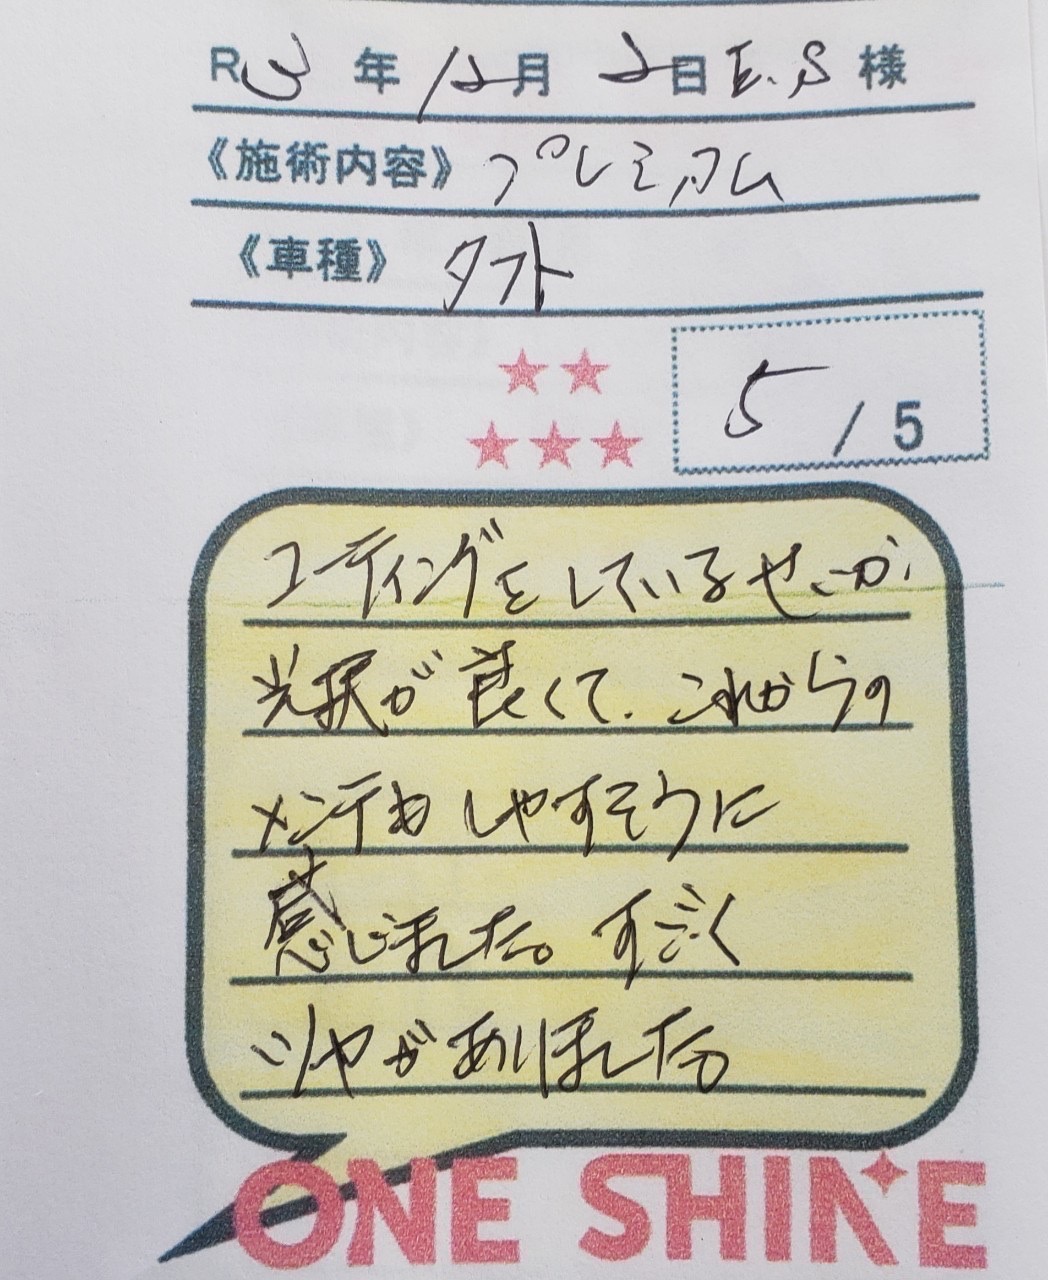 R3年12月2日 E.S様
《施術内容》プレミアム
《車種》タフト
5/5
コーディングをしているせいか、
光沢が良くて、これからの
メンテもしやすそうに
感じました。すごく
ツヤがありました。
ONE SHINE